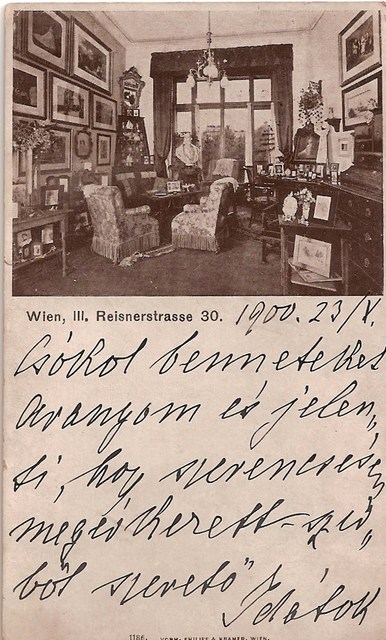 Wien, III. Reisnerstrasse 30. 1900. 23/V.
Csókol benneteket
Aranyom és jelen„
ti, hogy szerencsésen
megérkezett – szív„
ből szerető"
Idátok
1186. VORM. PHILIPP & KRAMER, WIEN.